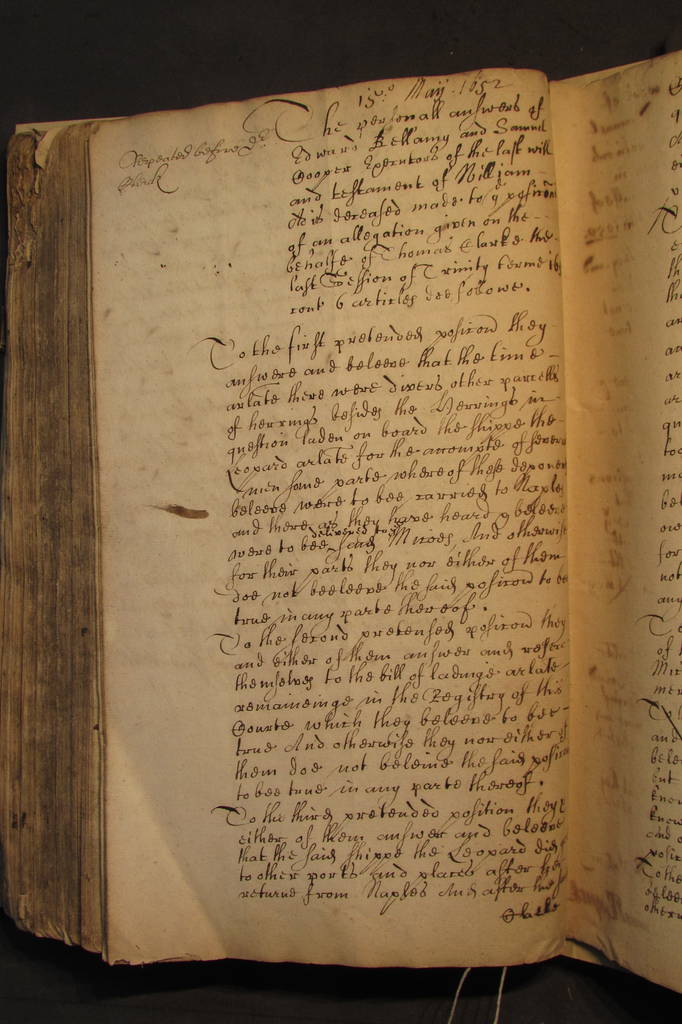 15.o May. 1652
Repeated before D.r
Clerk
The personall answers of
Edward Bellamy and Samuel
Cooper Executors of the last will
and testament of William
deceased made to ye posicons
of an allegation given on the
behalfe of Thomas Clarke the
last Session of Trinity terme
cont 6 articles doe followe.
To the first pretended posicon they
answere and beleeve that the time
arlate there were divers other parcells
of herrings besides the Herrings in
question laden on board the shippe the
Leopard arlate for the accompte of severall
men some parte whereof these deponents
beleeve were to bee carried to Naples
and there as they have heard & beleeve
were to bee delivered to ye said Micoes, And otherwise
for their parts they nor either of them
doe not beeleeve the said posicon to be
true in any parte thereof.
To the second pretensed posicon they
and either of them answer and referr
themselves to the bill of ladinge arlate
remaineinge in the Registry of this
Courte which they beleeve to bee
true And otherwise they nor either of
them doe not beleive the said posicon
to bee true in any parte thereof.
To the third pretended position they &
either of them answer and beleeve
that the said shippe the Leopard did
to other ports and places after her
returne from Naples And after her